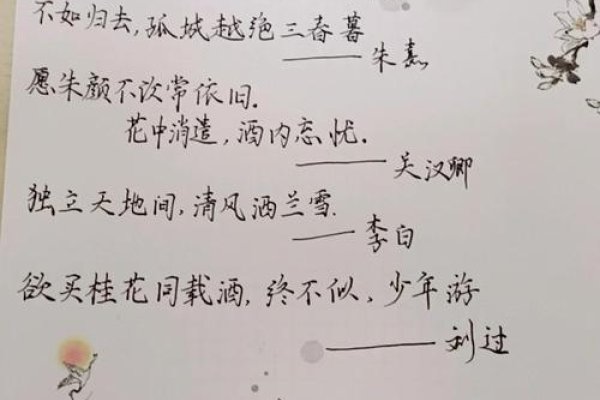 不如归去，孤城越绝三春暮
——朱熹
愿朱颜不改常依旧.
花中消遣，酒内忘忧.
——吴汉卿
独立天地间，清风洒兰雪.
——李白
欲买桂花同载酒，终不似，少年游
——刘过